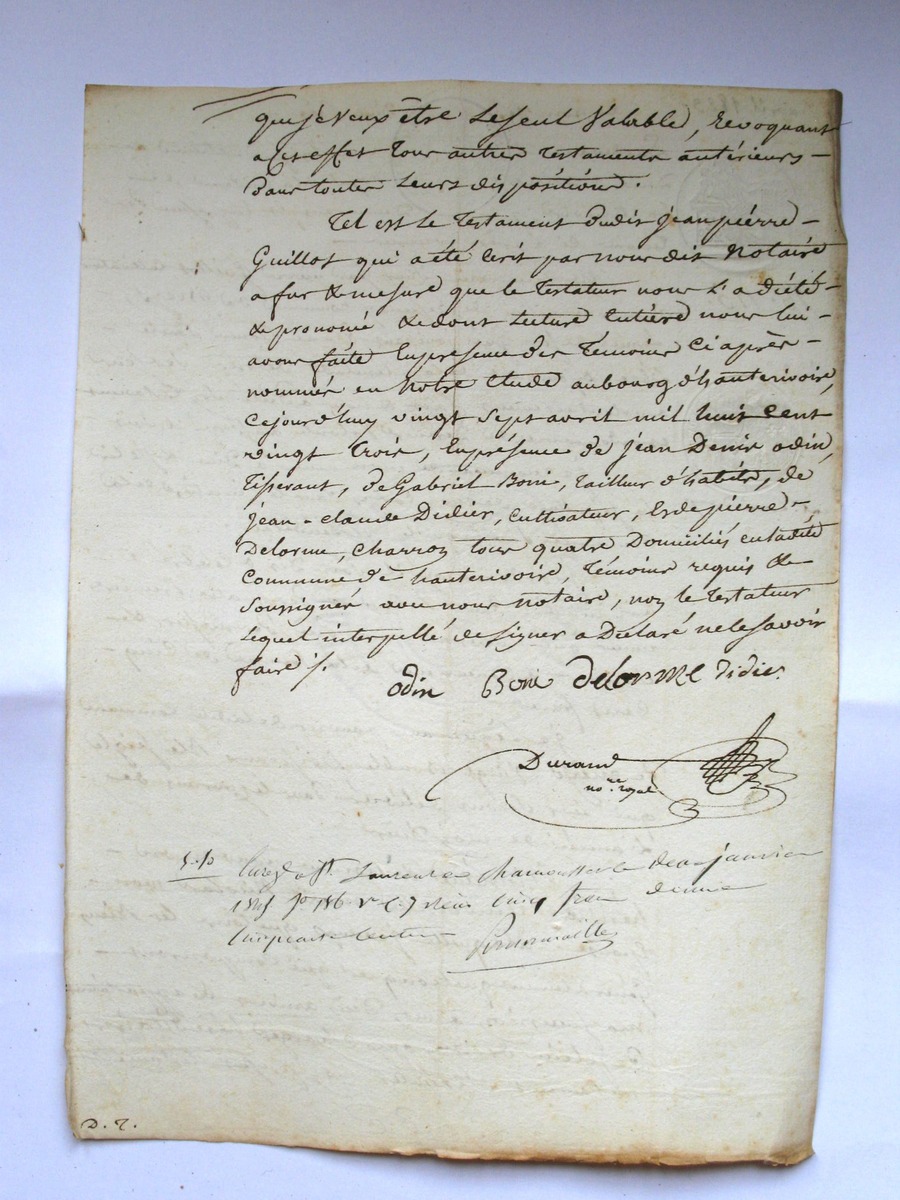 que je veux être le seul valable, revoquant
a cet effet tous autres testaments antérieurs –
dans toutes leurs dispositions.
Tel est le testament dudit jean pierre –
Guillot qui a été écrit par nous dit Notaire
a fur & mesure que le testateur nous l'a dicté –
& prononcé & dont lecture entière nous lui –
avons faite en presence des témoins ci après –
nommés en notre etude au bourg d'hauterivoire,
cejourd'huy vingt sept avril mil huit cent
vingt trois, en présence de jean Denis odin,
Tisserant, de Gabriel Boni, tailleur d'habits, de
jean-claude Didier, cultivateur, et de pierre –
Delorme, charron tous quatre Domiciliés en ladite
commune de hauterivoire, témoins requis &
soussignés avec nous notaire, non le testateur
lequel interpellé de signer a déclaré ne le savoir
faire ./.
odin Boni delorme didier
Durand
no.re royal
5.50
Enreg. a St. Laurent de Chamousset le deux janvier
f.o 186 v.o c. 7 reçu cinq francs
cinquante centimes
D. T.